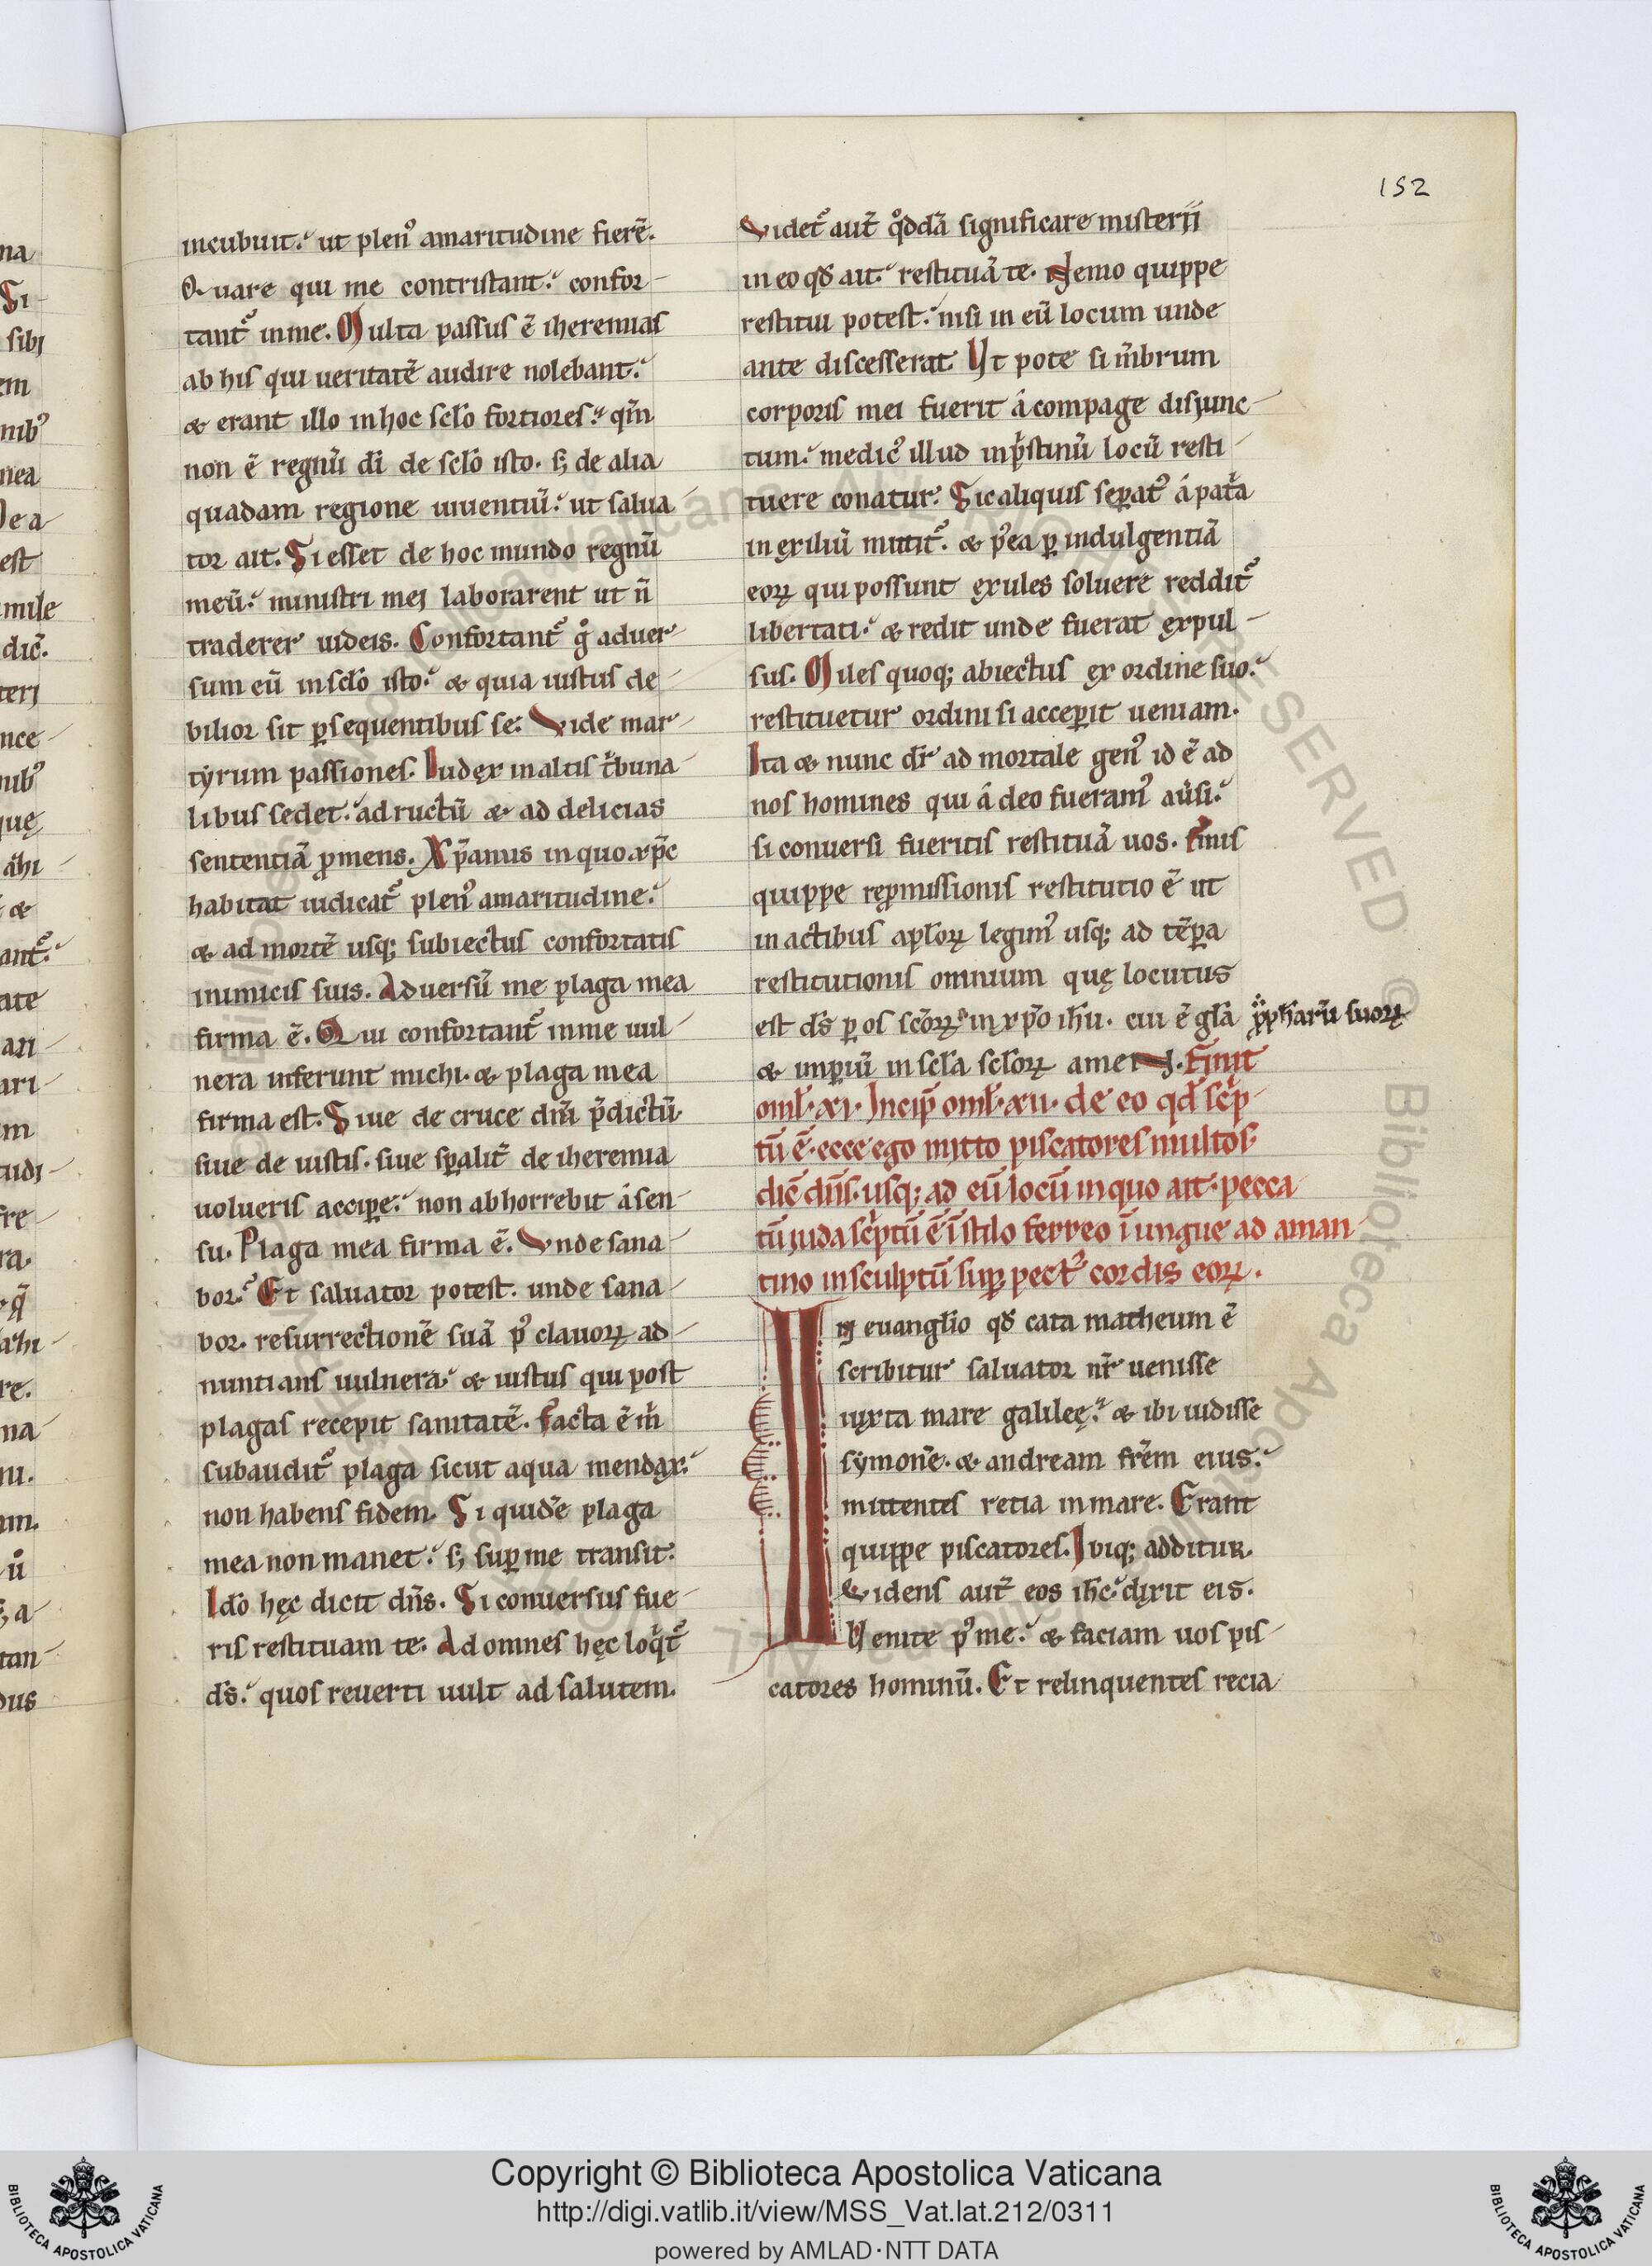 152
incubuit. ut plen᷒ amaritudine fierē.
Quare qui me contristant. confor-
tant᷒ in me. Multa passus ē iheremias
ab his qui ueritatē audire nolebant.
& erant illo in hoc sclo fortiores. qm̄
non ē regnū dī de sclo isto. s; de alia
quadam regione uiuentiū. ut salua-
tor ait. Si esset de hoc mundo regnū
meū. ministri mei laborarent ut n̄
traderer iudeis. Confortant᷒ g° aduer-
sum eū in sclo isto. & quia iustus de-
bilior sit ꝑsequentibus se. Vide mar-
tyrum passiones. Iudex in altis t'buna-
libus sedet. ad ructū & ad delicias
sententiā ꝓmens. Xp̄ianus in quo xp̄c
habitat iudicat᷒ plen᷒ amaritudine.
& ad mortē usq; subiectus confortatis
inimicis suis. Aduersū me plaga mea
firma ē. Qui confortant᷒ in me uul-
nera inferunt michi. & plaga mea
firma est. Siue de cruce dn̄i p̄dictū
siue de iustis. siue sp̄alit̄ de iheremia
uolueris accipe. non abhorrebit á sen-
su. Plaga mea firma ē. Vnde sana-
bor. Et saluator potest. unde sana-
bor. resurrectionē suā p᷒ clauoꝝ ad-
nuntians uulnera. & iustus qui post
plagas recepit sanitatē. Facta ē m̄
subaudit᷒ plaga sicut aqua mendax.
non habens fidem. Si quidē plaga
mea non manet. s; suꝑ me transit.
Ido hęc dicit dn̄s. Si conuersus fue-
ris restituam te. Ad omnes hęc loq̄t᷒
ds̄. quos reuerti uult ad salutem.
Videt᷒ aut̄ q°ddā significare misterii
in eo qđ ait. restituā te. Nemo quippe
restitui potest. nisi in eū locum unde
ante discesserat. Vt pote si m̄brum
corporis mei fuerit á compage disiunc-
tum. medic᷒ illud in p'stinū locū resti-
tuere conatur. Sic aliquis seꝑat᷒ á pat'a
in exiliū mittit᷒. & p᷒ea ꝑ indulgentiā
eoꝝ qui possunt exules soluere reddit᷒
libertati. & redit unde fuerat expul-
sus. Miles quoq; abiectus ex ordine suo.
restituetur ordini si acceꝑit ueniam.
Ita & nunc dr̄ ad mortale gen᷒ id ē ad
nos homines qui á deo fueram᷒ au̓si.
si conuersi fueritis restituā uos. Finis
quippe reꝓmissionis restitutio ē ut
in actibus aplōꝝ legim᷒ usq; ad tēꝑa
restitutionis omnium quę locutus
est ds̄ ꝑ os scōꝝ in xp̄o ihū. cui ē glā ꝓpharū suoꝝ
& imꝑiū in scla scloꝝ amen. Finit
oml̄. xi. Incip̄ oml̄. xii. de eo qđ sc'p-
tū ē. ecce ego mitto piscatores multos.
dic̄ dn̄s. usq; ad eū locū in quo ait. pecca-
tū iuda sc'ptū ē ī stilo ferreo ī ungue ad aman-
tino insculptū suꝑ pect᷒ cordis eoꝝ.
In euanglio qđ cata matheum ē
scribitur saluator nr̄ uenisse
iuxta mare galileę. & ibi uidisse
symonē. & andream frēm eius.
mittentes retia in mare. Erant
quippe piscatores. Ibiq; additur.
Videns aut̄ eos ihc̄. dixit eis.
Venite p᷒ me. & faciam uos pis-
catores hominū. Et relinquentes recia
Copyright © Biblioteca Apostolica Vaticana
http://digi.vatlib.it/view/MSS_Vat.lat.212/0311
powered by AMLAD·NTT DATA